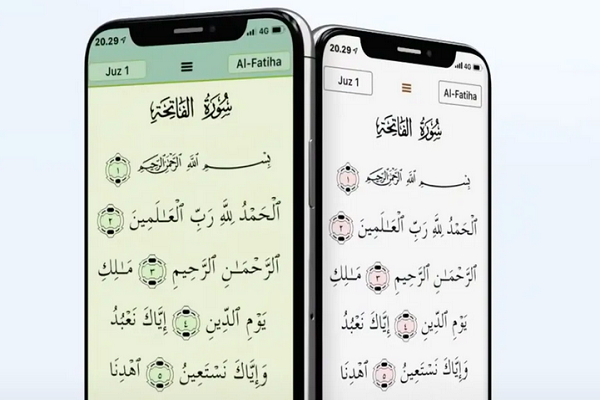 20.29 4G
Juz 1 Al-Fatiha
سُورَةُ الفَاتِحَةِ
بِسْمِ اللَّهِ الرَّحْمَٰنِ الرَّحِيمِ ١
ٱلْحَمْدُ لِلَّهِ رَبِّ ٱلْعَـٰلَمِينَ ٢
ٱلرَّحْمَـٰنِ ٱلرَّحِيمِ ٣ مَـٰلِكِ
يَوْمِ ٱلدِّينِ ٤ إِيَّاكَ نَعْبُدُ
وَإِيَّاكَ نَسْتَعِينُ ٥ ٱهْدِنَا
20.29 4G
Juz 1 Al-Fatiha
سُورَةُ الفَاتِحَةِ
بِسْمِ اللَّهِ الرَّحْمَٰنِ الرَّحِيمِ ١
ٱلْحَمْدُ لِلَّهِ رَبِّ ٱلْعَـٰلَمِينَ ٢
ٱلرَّحْمَـٰنِ ٱلرَّحِيمِ ٣ مَـٰلِكِ
يَوْمِ ٱلدِّينِ ٤ إِيَّاكَ نَعْبُدُ
وَإِيَّاكَ نَسْتَعِينُ ٥ ٱهْدِنَا